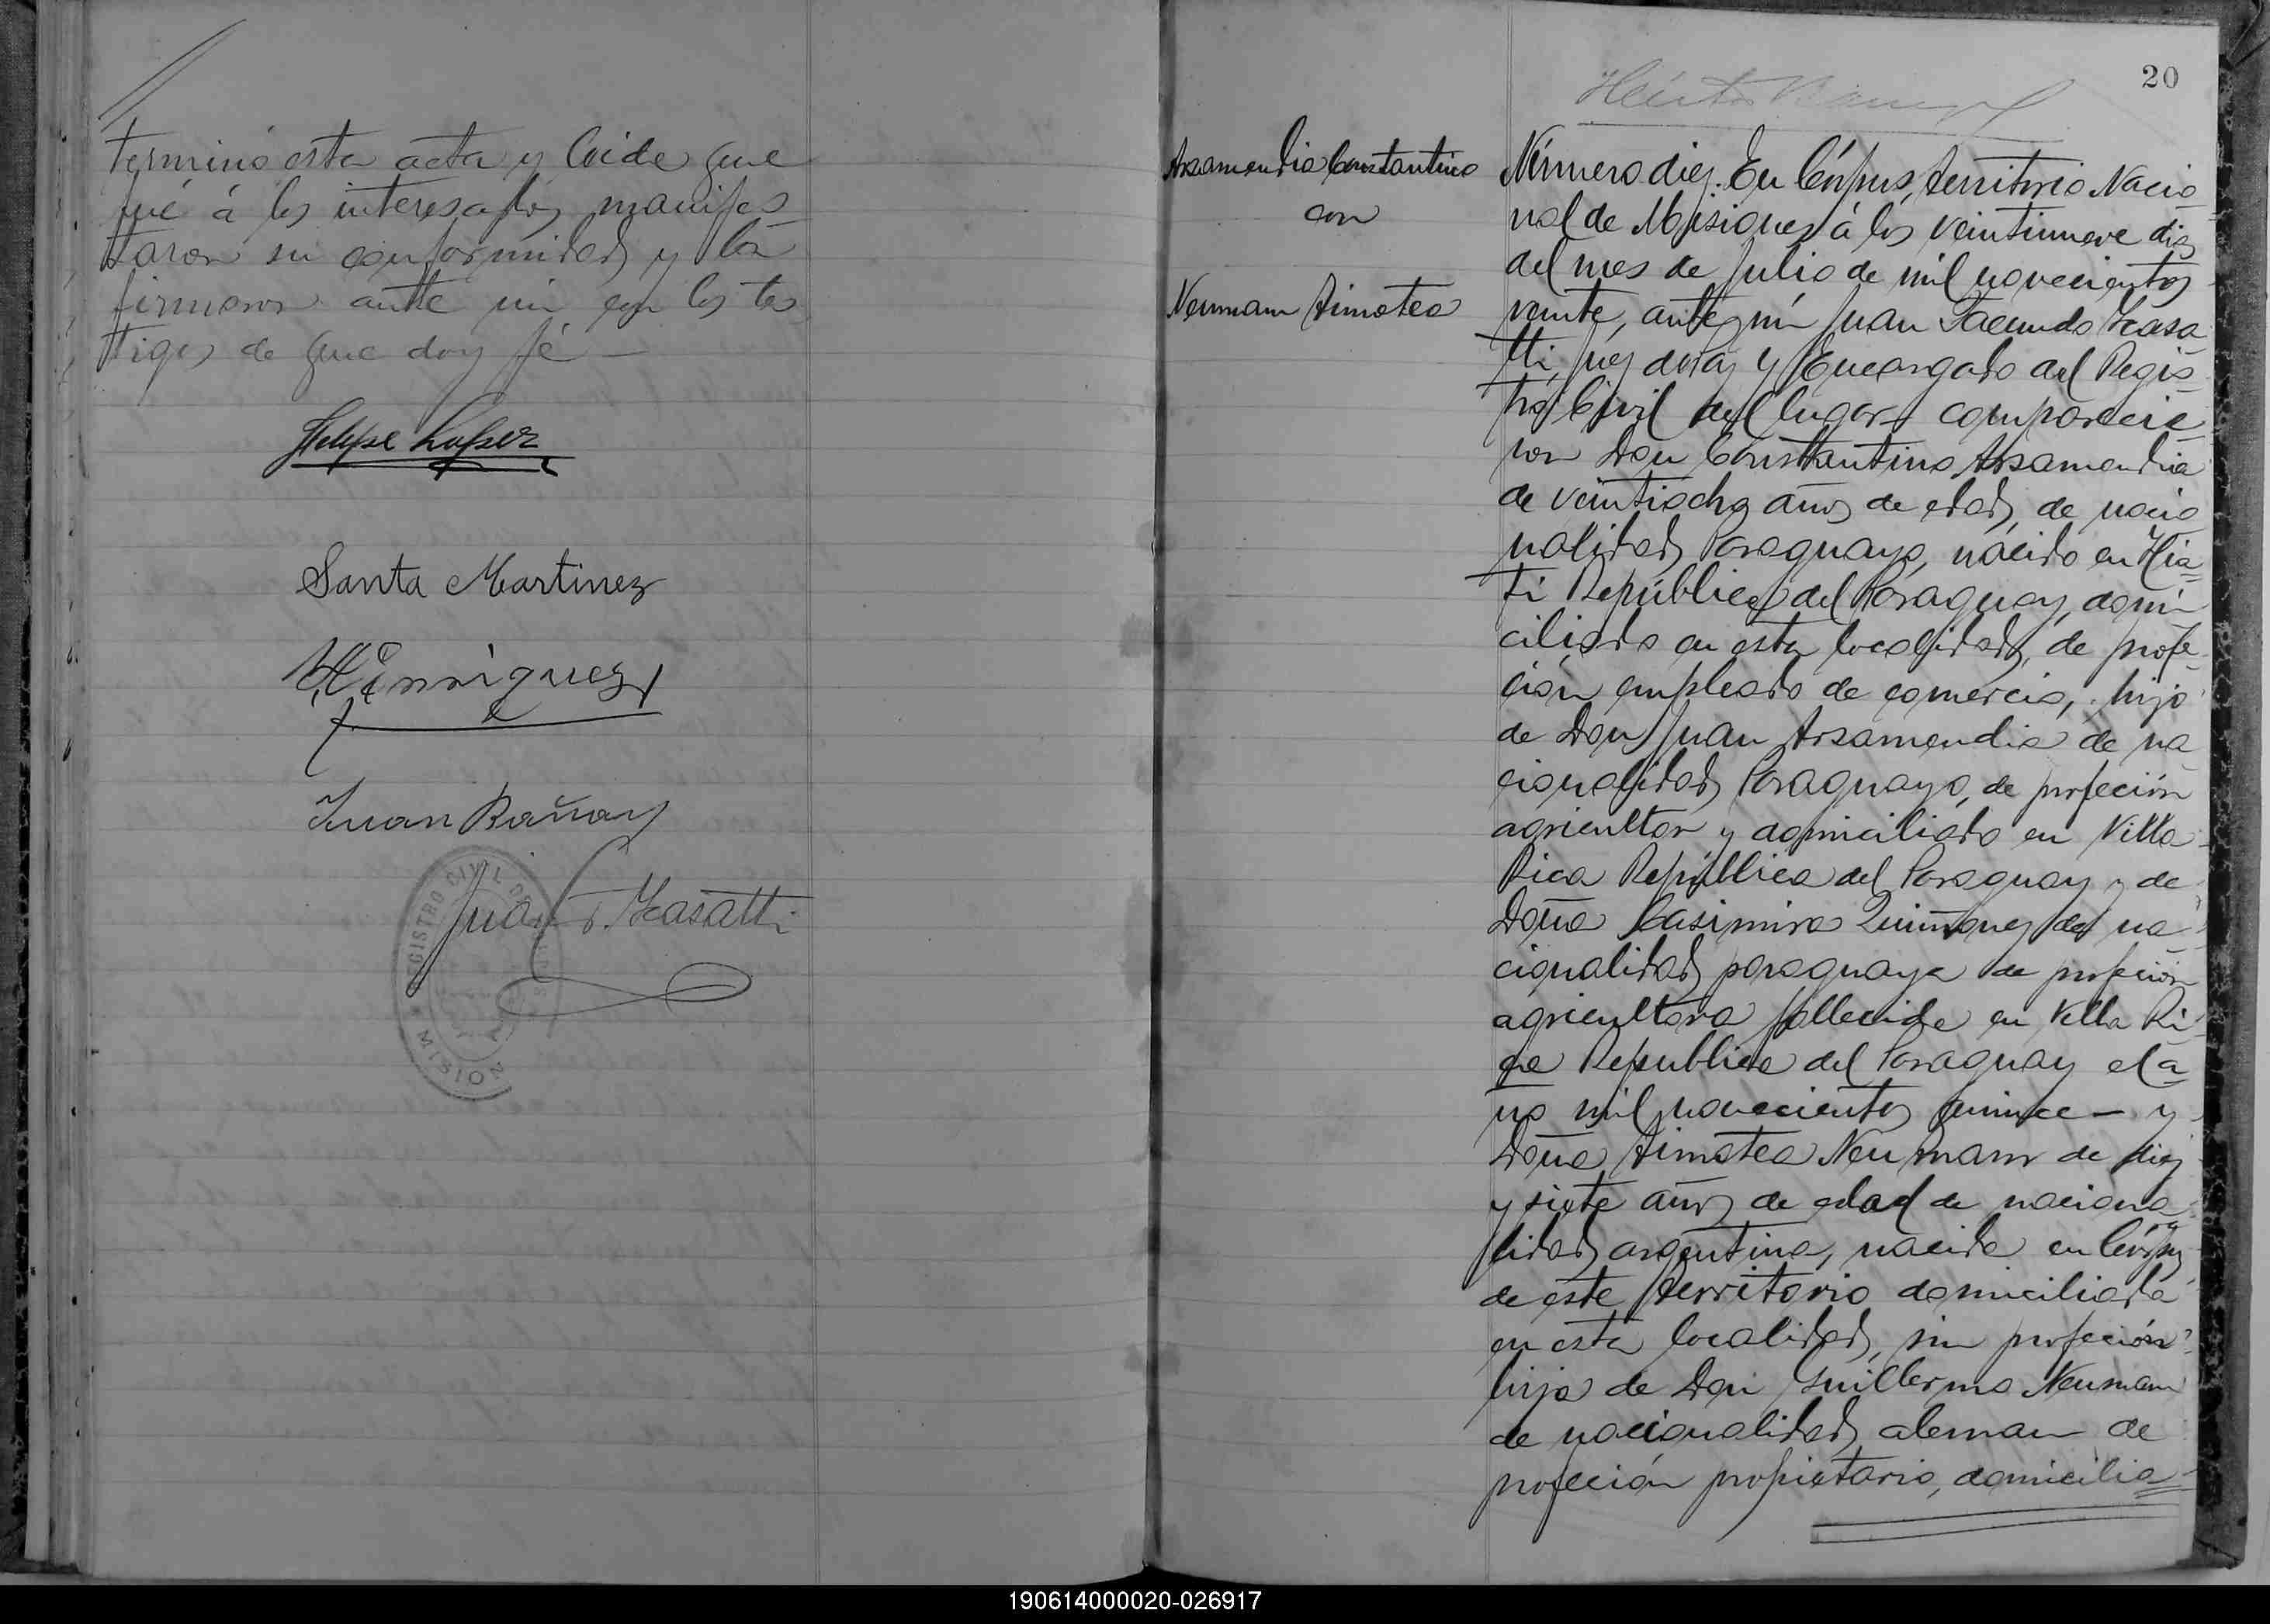 terminó esta acta y leida que
fué á los interesados manifes
taron su conformidad y la
firmaron ante mi con los tes
tigos de que doy fé —
Felipe
Santa Martinez
Enriquez
Juan
Juan F.
REGISTRO CIVIL DE
MISION
20
Arsamendia Constantino
con
Neumann Timotea
Número diez. En Córpus, Territorio Nacio
nal de Misiones á los veintinueve dias
del mes de Julio de mil novecientos
veinte, ante mi Juan Facundo
Juez de Paz y Encargado del Regis
tro Civil del lugar comparecie
ron Don Constantino Arsamendia
de veintiocho años de edad, de nacio
nalidad Paraguayo, nacido en Hia
ti República del Paraguay, domi
ciliado en esta localidad, de profe
ción empleado de comercio, hijo
de Don Juan Arsamendia de na
cionalidad Paraguayo, de profeción
agricultor y domiciliado en Villa
Rica República del Paraguay y de
Doña Casimira Quiñonez de na
cionalidad paraguaya de profeción
agricultora fallecida en Villa Ri
ca Republica del Paraguay el a
ño mil novecientos quince — y
Doña Timotea Neumann de diez
y siete años de edad de naciona
lidad argentina, nacida en Córpus
de este Territorio domiciliada
en esta localidad, sin profeción
hija de Don Guillermo Neumann
de nacionalidad aleman de
profeción propietario, domicilia
190614000020-026917